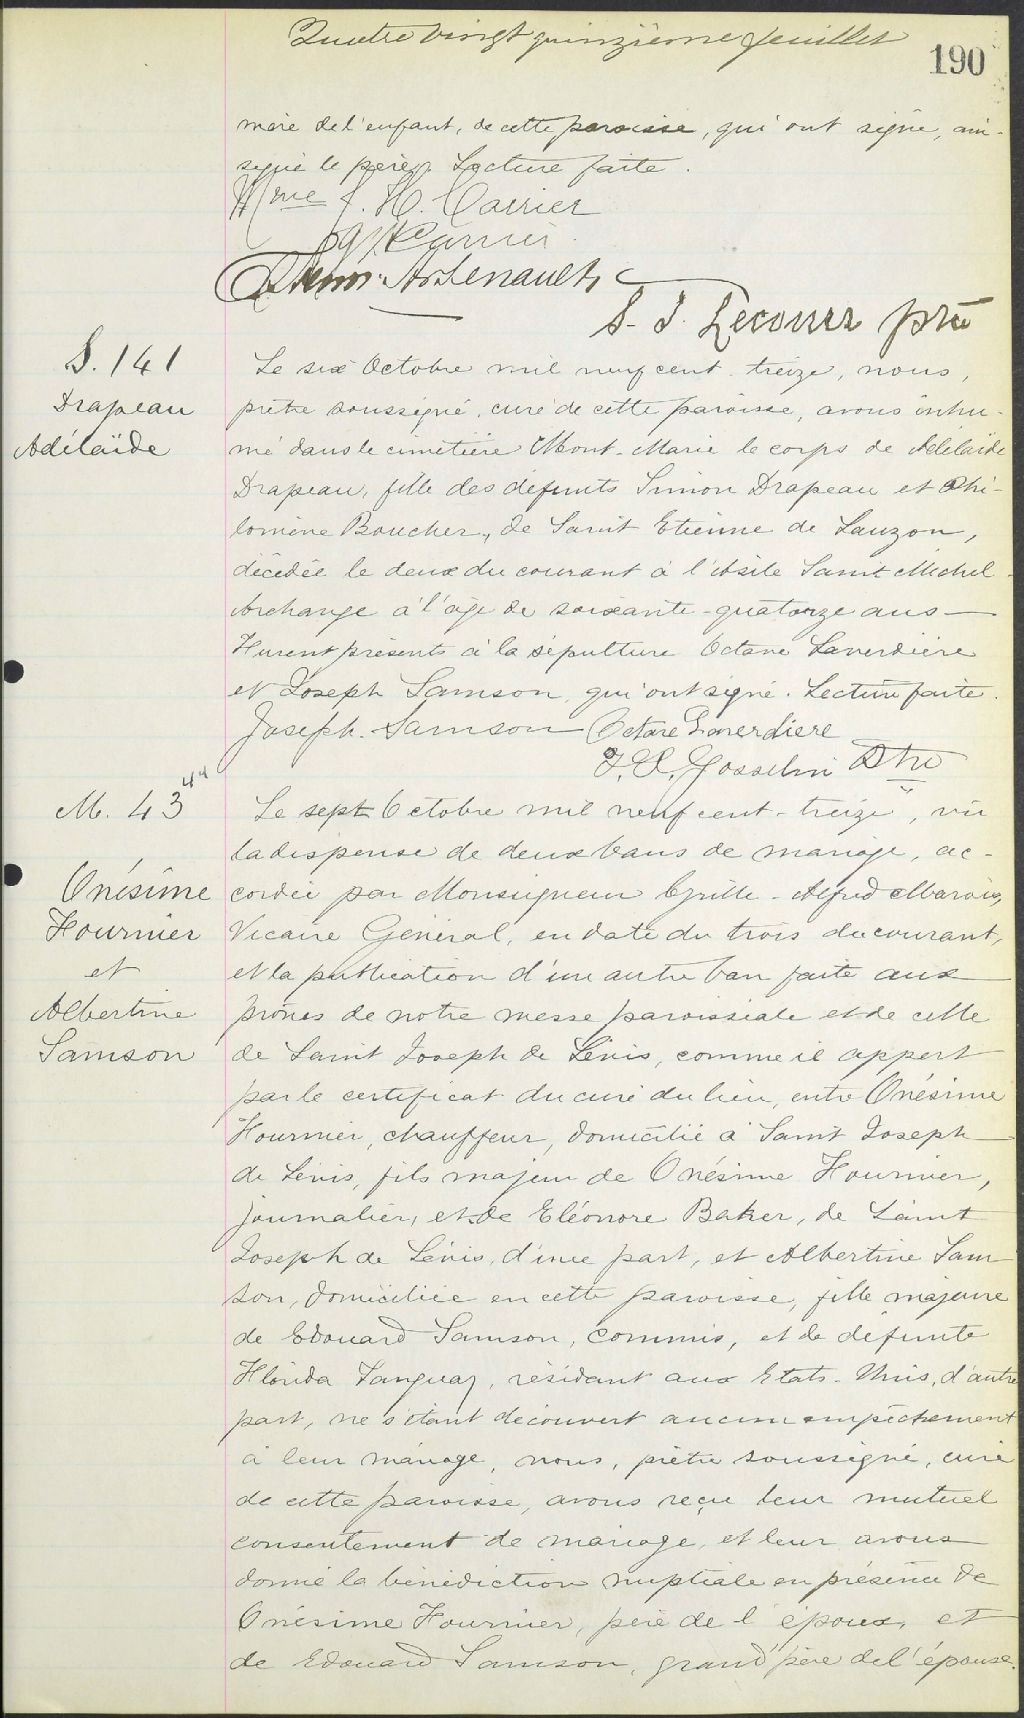 Quatre vingt quinzième feuillet
190
mère de l'enfant, de cette paroisse, qui ont signé, ain-
si que le père. Lecture faite.
Mme J. H. Carrier
J H Carrier
Arsenault
S. J. Lecours ptre
S. 141
Drapeau
Adélaïde
Le six Octobre mil neuf cent treize, nous,
prêtre soussigné, curé de cette paroisse, avons inhu-
mé dans le cimetière Mont-Marie le corps de Adélaïde
Drapeau, fille des défunts Simon Drapeau et Phi-
lomène Boucher, de Saint Etienne de Lauzon,
décédée le deux du courant à l'Asile Saint Michel
Archange à l'âge de soixante-quatorze ans—
Furent présents à la sépulture Octave Laverdière
et Joseph Samson, qui ont signé. Lecture faite.
Joseph. Samson Octave Laverdiere
Gosselin Ptre
M. 43 44
Onésime
Fournier
et
Albertine
Samson
Le sept Octobre mil neuf cent-treize, vu
la dispense de deux bans de mariage, ac-
cordée par Monseigneur Cyrille-Alfred Marois,
Vicaire Général, en date du trois du courant,
et la publication d'un autre ban faite aux
prônes de notre messe paroissiale et de celle
de Saint Joseph de Lévis, comme il appert
par le certificat du curé du lieu, entre Onésime
Fournier, chauffeur, domicilié à Saint Joseph
de Lévis, fils majeur de Onésime Fournier,
journalier, et de Eléonore Baker, de Saint
Joseph de Lévis, d'une part, et Albertine Sam
son, domiciliée en cette paroisse, fille majeure
de Edouard Samson, commis, et de défunte
Florida Tanguay, résidant aux Etats-Unis, d'autre
part, ne s'étant découvert aucun empêchement
à leur mariage, nous, prêtre soussigné, curé
de cette paroisse, avons reçu leur mutuel
consentement de mariage, et leur avons
donné la bénédiction nuptiale en présence de
Onésime Fournier, père de l'époux, et
de Edouard Samson, grand'père de l'épouse.